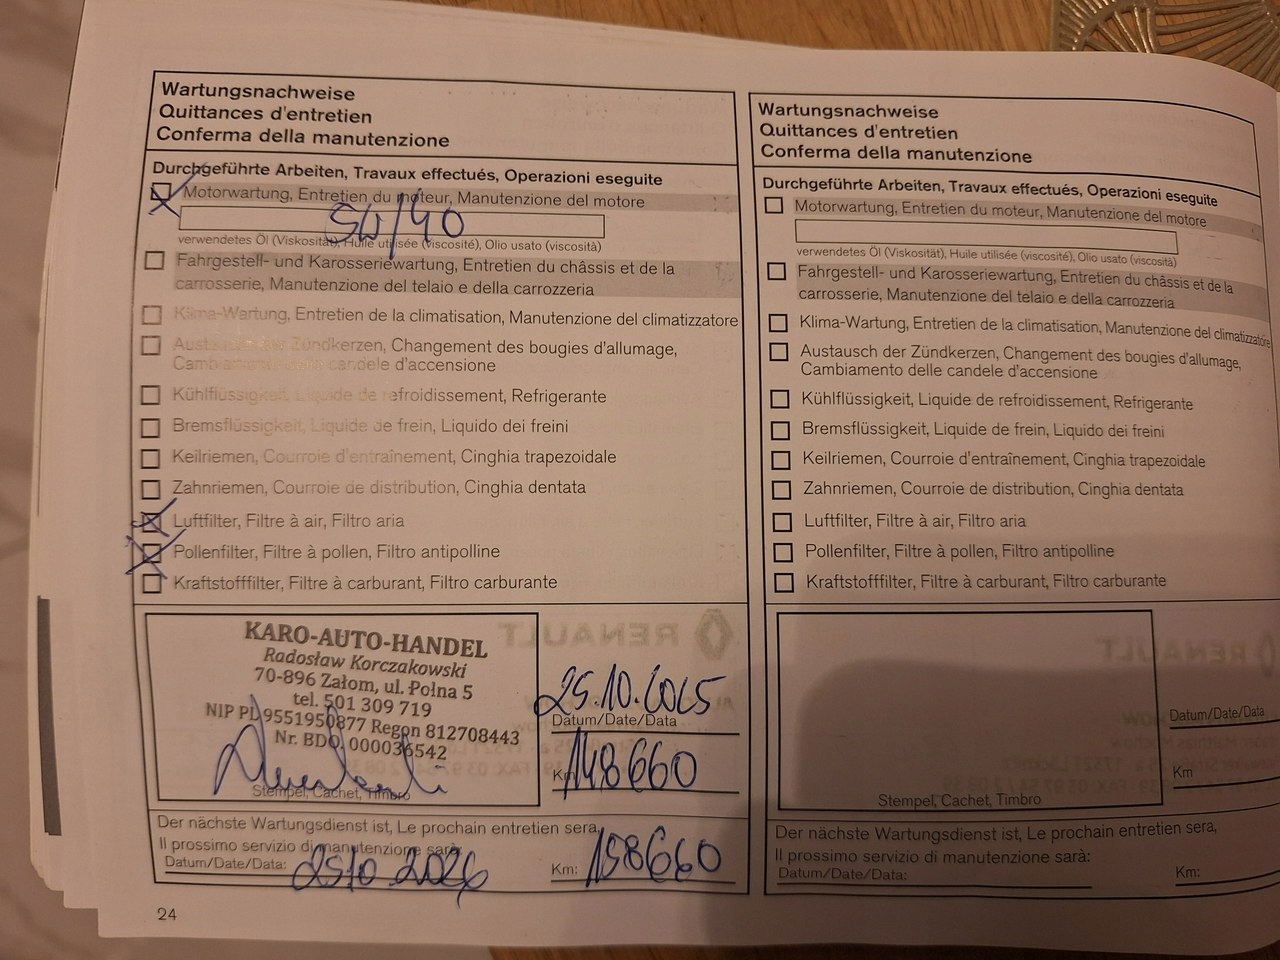 Wartungsnachweise
Quittances d'entretien
Conferma della manutenzione
Durchgeführte Arbeiten, Travaux effectués, Operazioni eseguite
Motorwartung, Entretien du moteur, Manutenzione del motore
5W/40
verwendetes Öl (Viskosität), Huile utilisée (viscosité), Olio usato (viscosità)
Fahrgestell- und Karosseriewartung, Entretien du châssis et de la
carrosserie, Manutenzione del telaio e della carrozzeria
Klima-Wartung, Entretien de la climatisation, Manutenzione del climatizzatore
Austausch der Zündkerzen, Changement des bougies d'allumage,
Cambiamento delle candele d'accensione
Kühlflüssigkeit, Liquide de refroidissement, Refrigerante
Bremsflüssigkeit, Liquide de frein, Liquido dei freini
Keilriemen, Courroie d'entraînement, Cinghia trapezoidale
Zahnriemen, Courroie de distribution, Cinghia dentata
Luftfilter, Filtre à air, Filtro aria
Pollenfilter, Filtre à pollen, Filtro antipolline
Kraftstofffilter, Filtre à carburant, Filtro carburante
KARO-AUTO-HANDEL
Radosław Korczakowski
70-896 Załom, ul. Polna 5
tel. 501 309 719
NIP PL9551950877 Regon 812708443
Nr. BDO 000036542
Stempel, Cachet, Timbro
25.10.2025
Datum/Date/Data
Km 148660
Der nächste Wartungsdienst ist, Le prochain entretien sera,
Il prossimo servizio di manutenzione sarà:
Datum/Date/Data: 25 10 2026
Km: 158660
24
Wartungsnachweise
Quittances d'entretien
Conferma della manutenzione
Durchgeführte Arbeiten, Travaux effectués, Operazioni eseguite
Motorwartung, Entretien du moteur, Manutenzione del motore
verwendetes Öl (Viskosität), Huile utilisée (viscosité), Olio usato (viscosità)
Fahrgestell- und Karosseriewartung, Entretien du châssis et de la
carrosserie, Manutenzione del telaio e della carrozzeria
Klima-Wartung, Entretien de la climatisation, Manutenzione del climatizzatore
Austausch der Zündkerzen, Changement des bougies d'allumage,
Cambiamento delle candele d'accensione
Kühlflüssigkeit, Liquide de refroidissement, Refrigerante
Bremsflüssigkeit, Liquide de frein, Liquido dei freini
Keilriemen, Courroie d'entraînement, Cinghia trapezoidale
Zahnriemen, Courroie de distribution, Cinghia dentata
Luftfilter, Filtre à air, Filtro aria
Pollenfilter, Filtre à pollen, Filtro antipolline
Kraftstofffilter, Filtre à carburant, Filtro carburante
Stempel, Cachet, Timbro
Datum/Date/Data
Km
Der nächste Wartungsdienst ist, Le prochain entretien sera,
Il prossimo servizio di manutenzione sarà:
Datum/Date/Data:
Km: